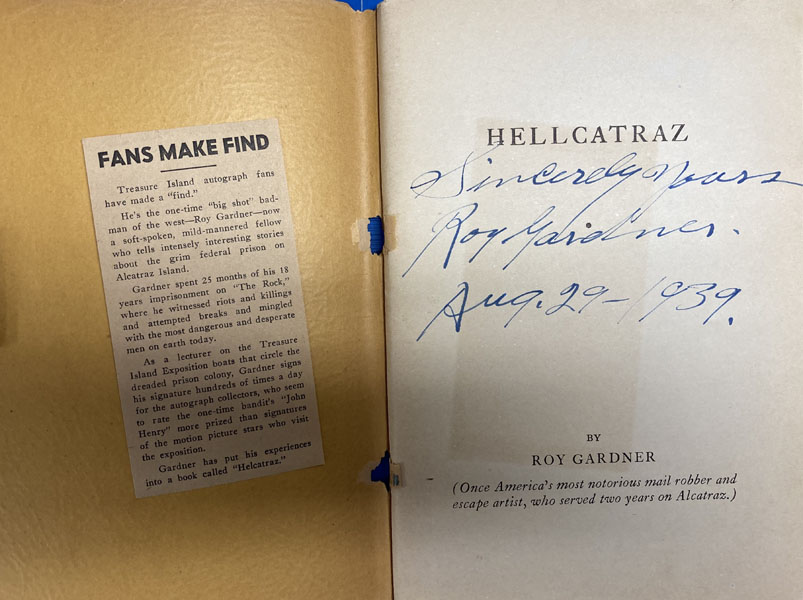 FANS MAKE FIND
Treasure Island autograph fans
have made a "find."
He's the one-time "big shot" bad-
man of the west—Roy Gardner—now
a soft-spoken, mild-mannered fellow
who tells intensely interesting stories
about the grim federal prison on
Alcatraz Island.
Gardner spent 25 months of his 18
years imprisonment on "The Rock,"
where he witnessed riots and killings
and attempted breaks and mingled
with the most dangerous and desperate
men on earth today.
As a lecturer on the Treasure
Island Exposition boats that circle the
dreaded prison colony, Gardner signs
his signature hundreds of times a day
for the autograph collectors, who seem
to rate the one-time bandit's "John
Henry" more prized than signatures
of the motion picture stars who visit
the exposition.
Gardner has put his experiences
into a book called "Helcatraz."
HELLCATRAZ
Sincerely Yours
Roy Gardner.
Aug. 29 - 1939.
BY
ROY GARDNER
(Once America's most notorious mail robber and
escape artist, who served two years on Alcatraz.)